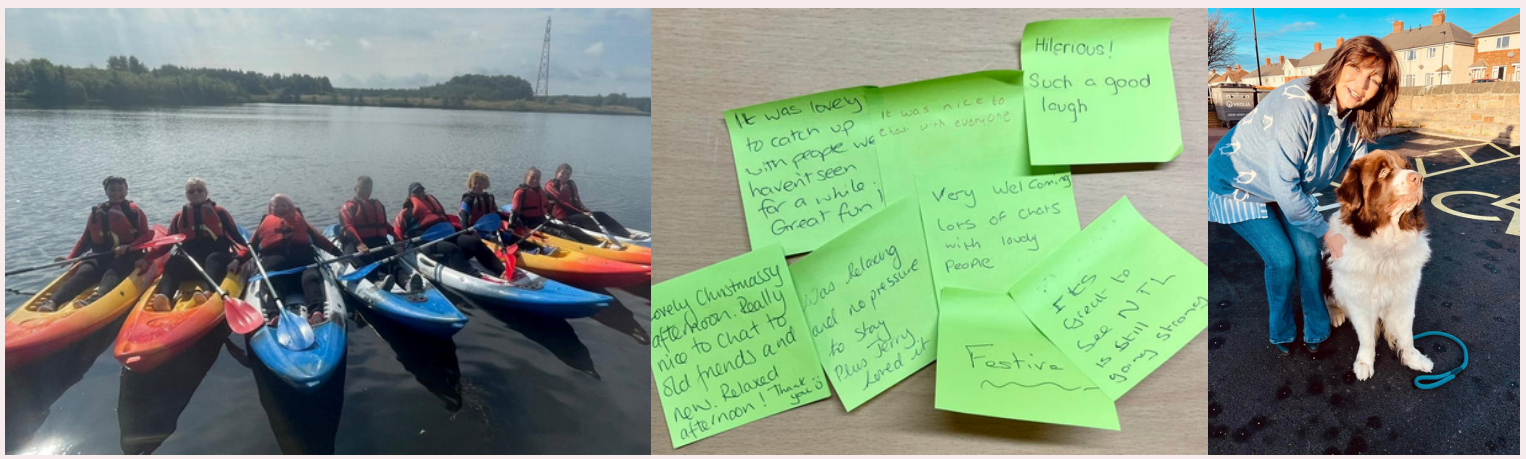 It was lovely
to catch up
with people we
haven't seen
for a while!
Great fun!
It was nice to
chat with everyone
Hilerious!
Such a good
laugh
Very Wel coming
lots of chats
with lovely
People
Lovely Christmassy
afternoon. Really
nice to chat to
old friends and
new. Relaxed
afternoon! Thank
you
Was relaxing
and no pressure
to stay
Plus Jerry
loved it
Festive
It's
Great to
See NTL
is still
going strong
VEOLIA